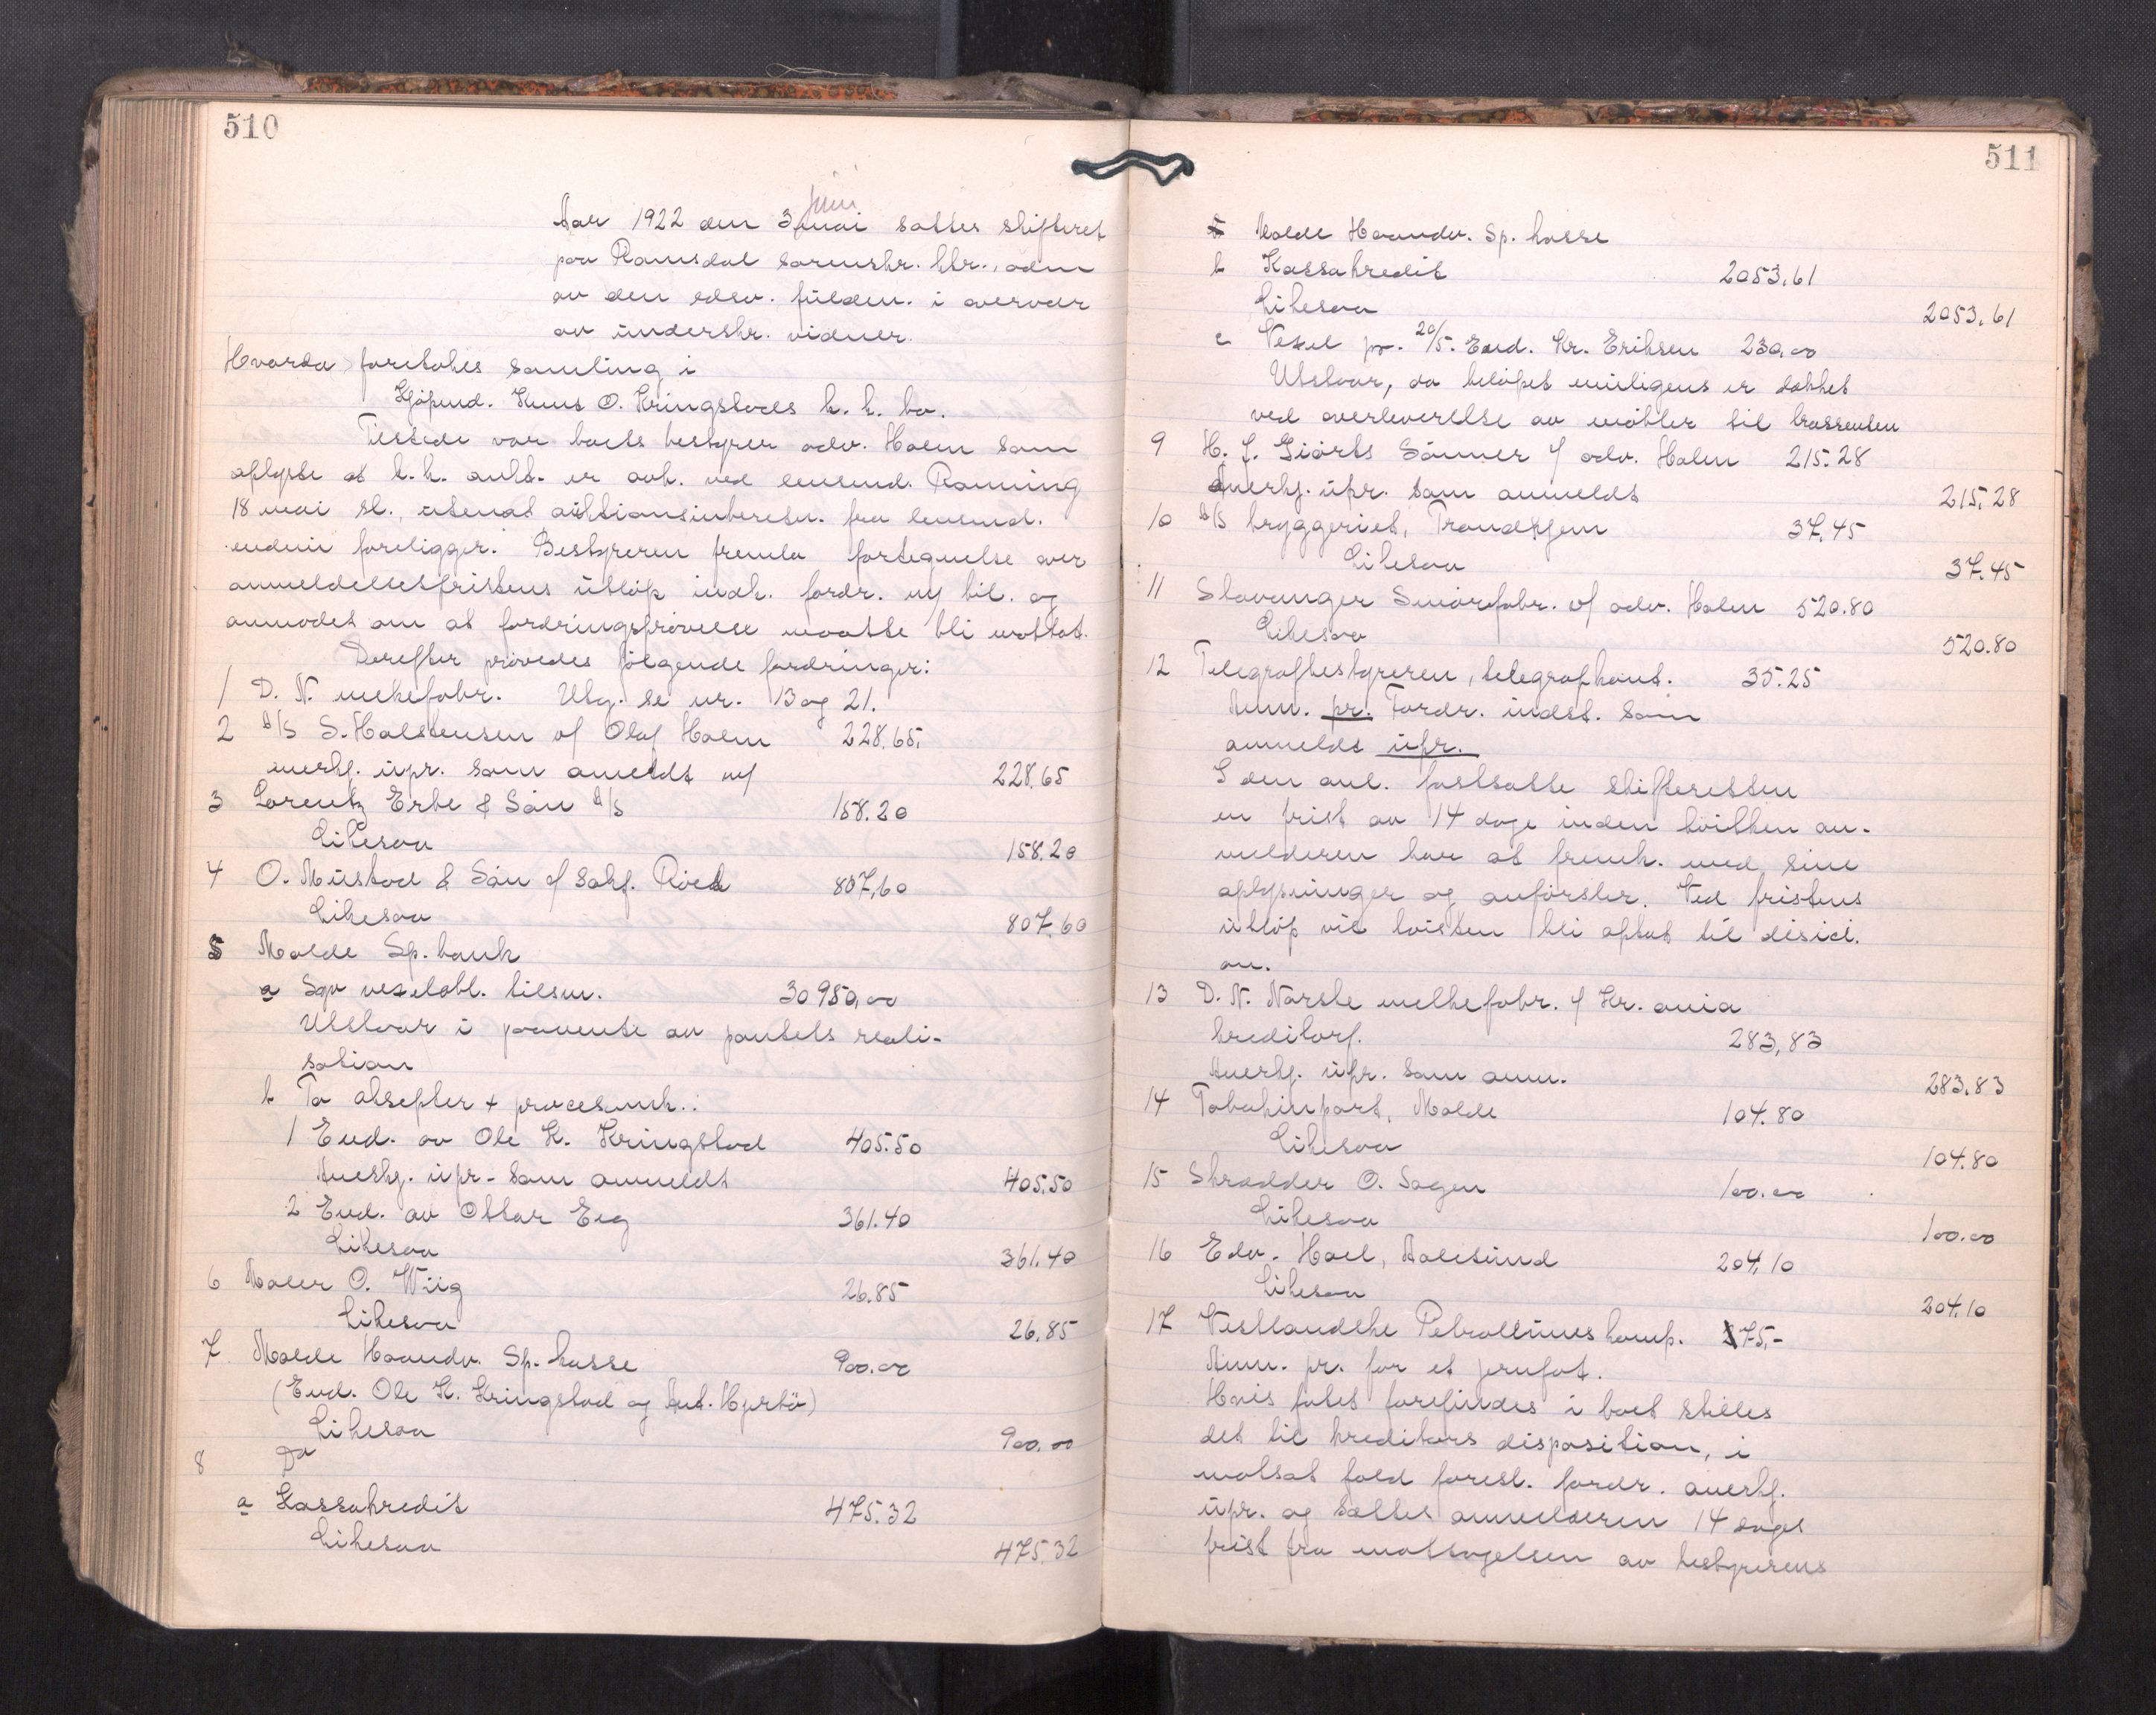 510
juni
Aar 1922 den 3 mai sattes skifteret
paa Romsdal sorenskr. ktr., adm
av den edsv. fuldm. i overvær
av underskr. vidner.
Hvorda foretokes samling i
Kjøpmd. Knut O. Kringstads k. k. bo.
Tilstede var boets bestyrer adv. Holm som
oplyste at k. k. aukt. er avh. ved lensmd. Rønning
18 mai sl., utenat auktionsinberetn. fra lensmd.
endnu foreligger. Bestyreren fremla fortegnelse over
anmeldelsesfristens utløp indk. fordr. m/ bil. og
anmodet om at fordringsprøvelse maatte bli mottat.
Derefter prøvedes følgende fordringer:
1 D. N. melkefabr. Utg. se nr. 13 og 21.
2 A/S S. Halstensen v/ Olaf Holm 228.65
anerkj. upr. som anmeldt m/ 228.65
3 Lorentz Erbe & Søn A/S 158.20
Likesaa 158.20
4 O. Mustad & Søn v/ sakf. Röed 807,60
Likesaa 807.60
5 Molde Sp. bank
a Syv vexelobl. tilsm. 30950,00
Utstaar i paavente av pantets reali-
sation
b To aksepter + procesomk.:
1 End. av Ole K. Kringstad 405.50
Anerkj. upr. som anmeldt 405.50
2 End. av Ottar Eeg 361.40
Likesaa 361.40
6 Maler O. Wiig 26.85
Likesaa 26.85
7 Molde Haandv. Sp. kasse 900.00
(End. Ole K. Kringstad og Ant. Hjertö)
Likesaa 900.00
8 Do
a Kassakredit 475.32
Likesaa 475.32
511
Molde Haandv. Sp. kasse
b Kassakredit 2053.61
Likesaa 2053.61
c Vexel pr. 20/5. End. Kr. Eriksen 230,00
Utstaar, da beløpet muligens er dækket
ved overleverelse av møbler til trassenten
9 H. J. Giörts Sönner v/ adv. Holm 215.28
Anerkj. upr. som anmeldt 215.28
10 A/S bryggeriet, Trondhjem 37.45
Likesaa 37.45
11 Stavanger Smörfabr. v/ adv. Holm 520.80
Likesaa 520.80
12 Telegrafbestyreren, telegrafkont. 35.25
Anm. pr. Fordr. indst. som
anmeldt upr.
I den anl. fastsatte skifteretten
en frist av 14 dage inden hvilken an-
melderen har at fremk. med sine
oplysninger og anførsler. Ved fristens
utløp vil tvisten bli optat til desici-
on.
13 D. N. Norske melkefabr. v/ Kr.ania
kreditorf. 283,83
Anerkj. upr. som anm. 283.83
14 Tobakimport, Molde 104.80
Likesaa 104.80
15 Skrædder O. Sagen 100.00
Likesaa 100.00
16 Edv. Hoel, Aalesund 204,10
Likesaa 204.10
17 Vestlandske Petroleumskomp. 75,-
Anm. pr. for et jernfat.
Hvis fatet forefindes i boet stilles
det til kreditors disposition, i
motsat fald forest. fordr. anerkj.
upr. og sættes anmelderen 14 dages
frist fra mottagelsen av bestyrerens